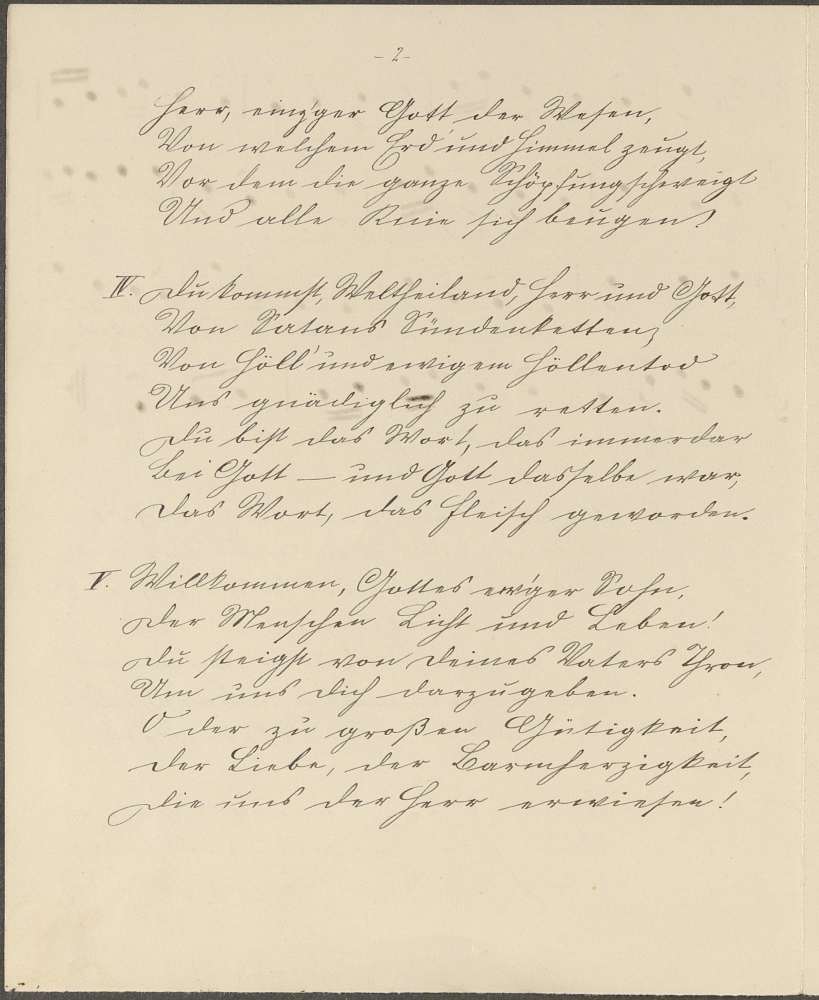 - 2 -
Herr, einz'ger Gott der Wesen,
Von welchem Erd' und Himmel zeugt,
Vor dem die ganze Schöpfung schweigt
Und alle Knie sich beugen?
IV. Du kommst, Weltheiland, Herr und Gott,
Von Satans Sündenketten,
Von Höll' und ewigem Höllentod
Uns gnädiglich zu retten.
Du bist das Wort, das immerdar
Bei Gott — und Gott dasselbe war,
Das Wort, das Fleisch geworden.
V. Willkommen, Gottes ew'ger Sohn,
Der Menschen Licht und Leben!
Du steigst von Deines Vaters Thron,
Um uns Dich darzugeben.
O der zu großen Gütigkeit,
Der Liebe, der Barmherzigkeit,
Die uns der Herr erwiesen!